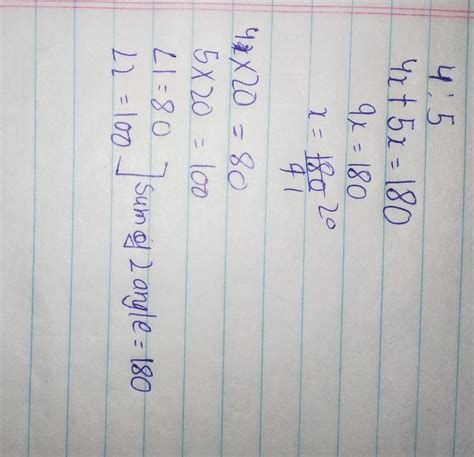 4:5
4x + 5x = 180
9x = 180
x = 180 20
9 1
4x × 20 = 80
5 × 20 = 100
∠1 = 80
∠2 = 100 ] sum of 2 angle = 180